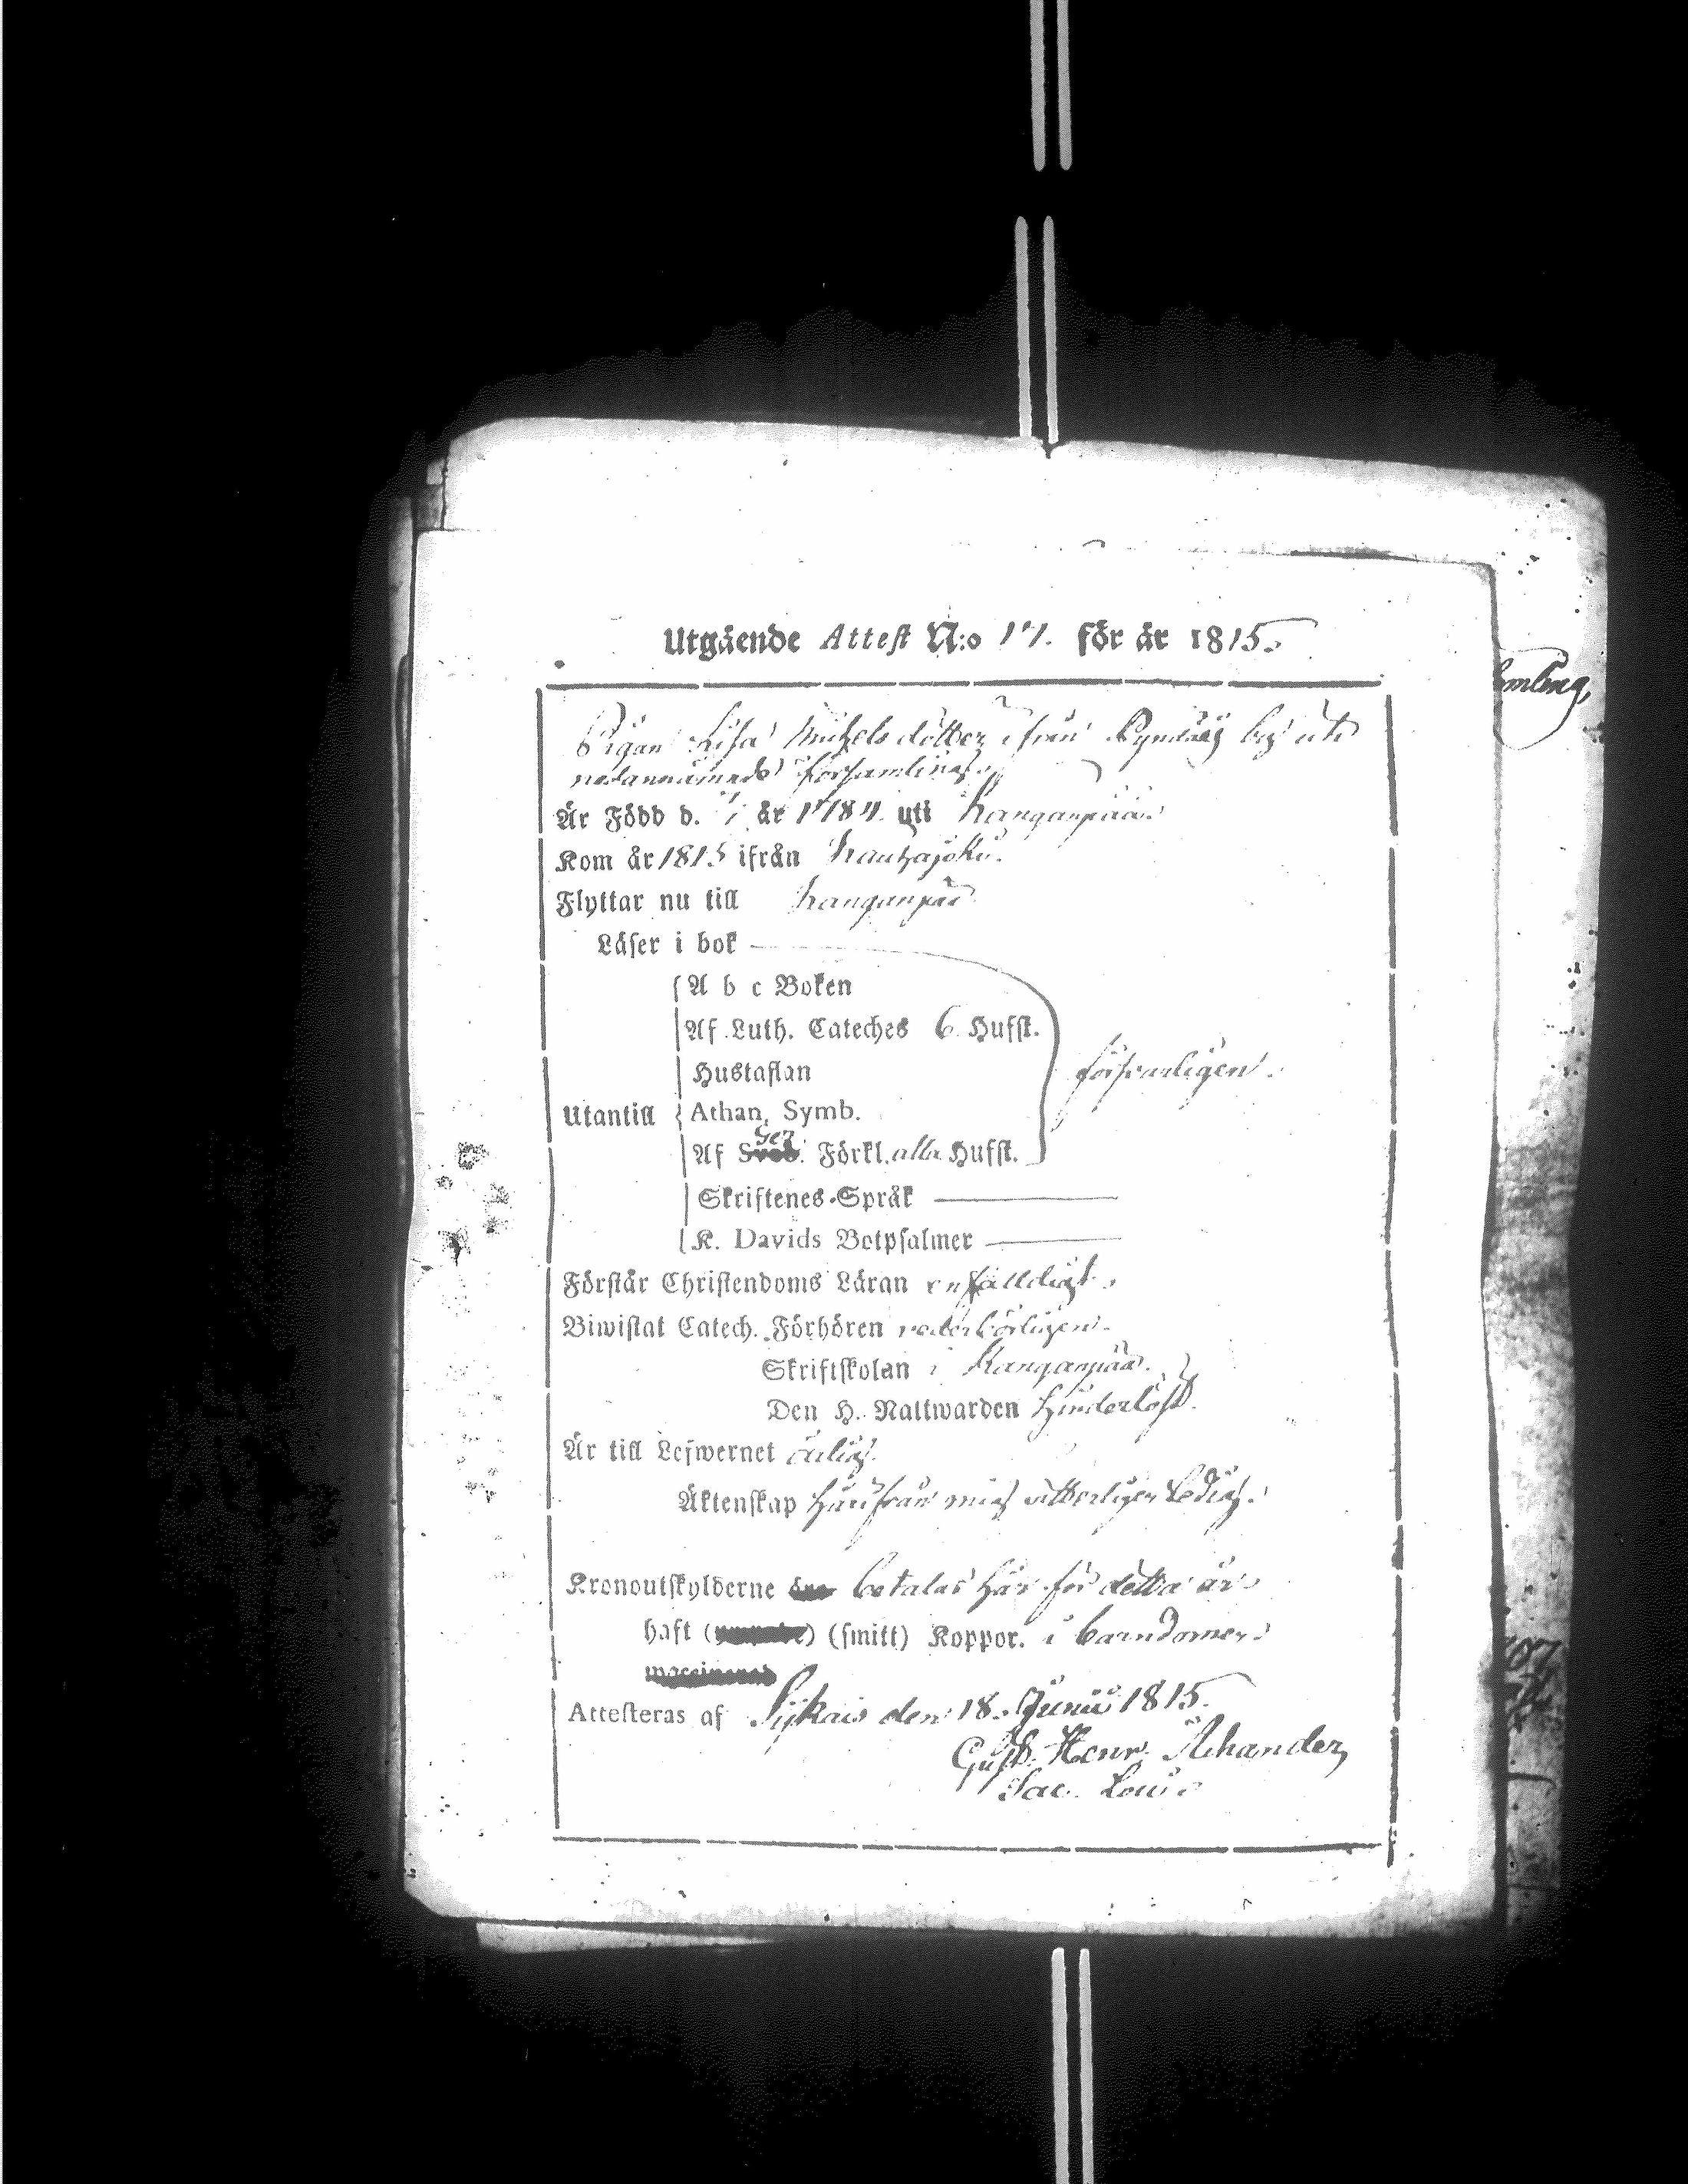 Utgående Attest N:o 17. för år 1815.
Pigan Lisa Michelsdotter ifrån by uti
nedannämnde församling.
Är Född d. 7/7 år 1784 uti Kanganpää.
Kom år 1815 ifrån Kauhajoki.
Flyttar nu till Kanganpää
Läser i bok
A b c Boken
Af Luth. Cateches 6 Hufst.
Hustaflan försvarligen.
Utantill Athan. Symb.
Ser
Af Sveb. Förkl. alla Hufst.
Skriftenes-Språk
K. Davids Botpsalmer
Förstår Christendoms Läran enfalldigt.
Biwistat Catech. Förhören vederbörligen.
Skriftskolan i Kanganpää.
Den H. Nattwarden hinderlöst.
Är till Lefwernet ärlig.
Äktenskap härifrån mig vitterligen Ledig.
Kronoutskylderne betalas här för detta år
haft ( ) (smitt) Koppor. i barndomen.
waccinerad
Attesteras af den 18. Junii 1815.
Gust. Henr. Achander,
Sac.